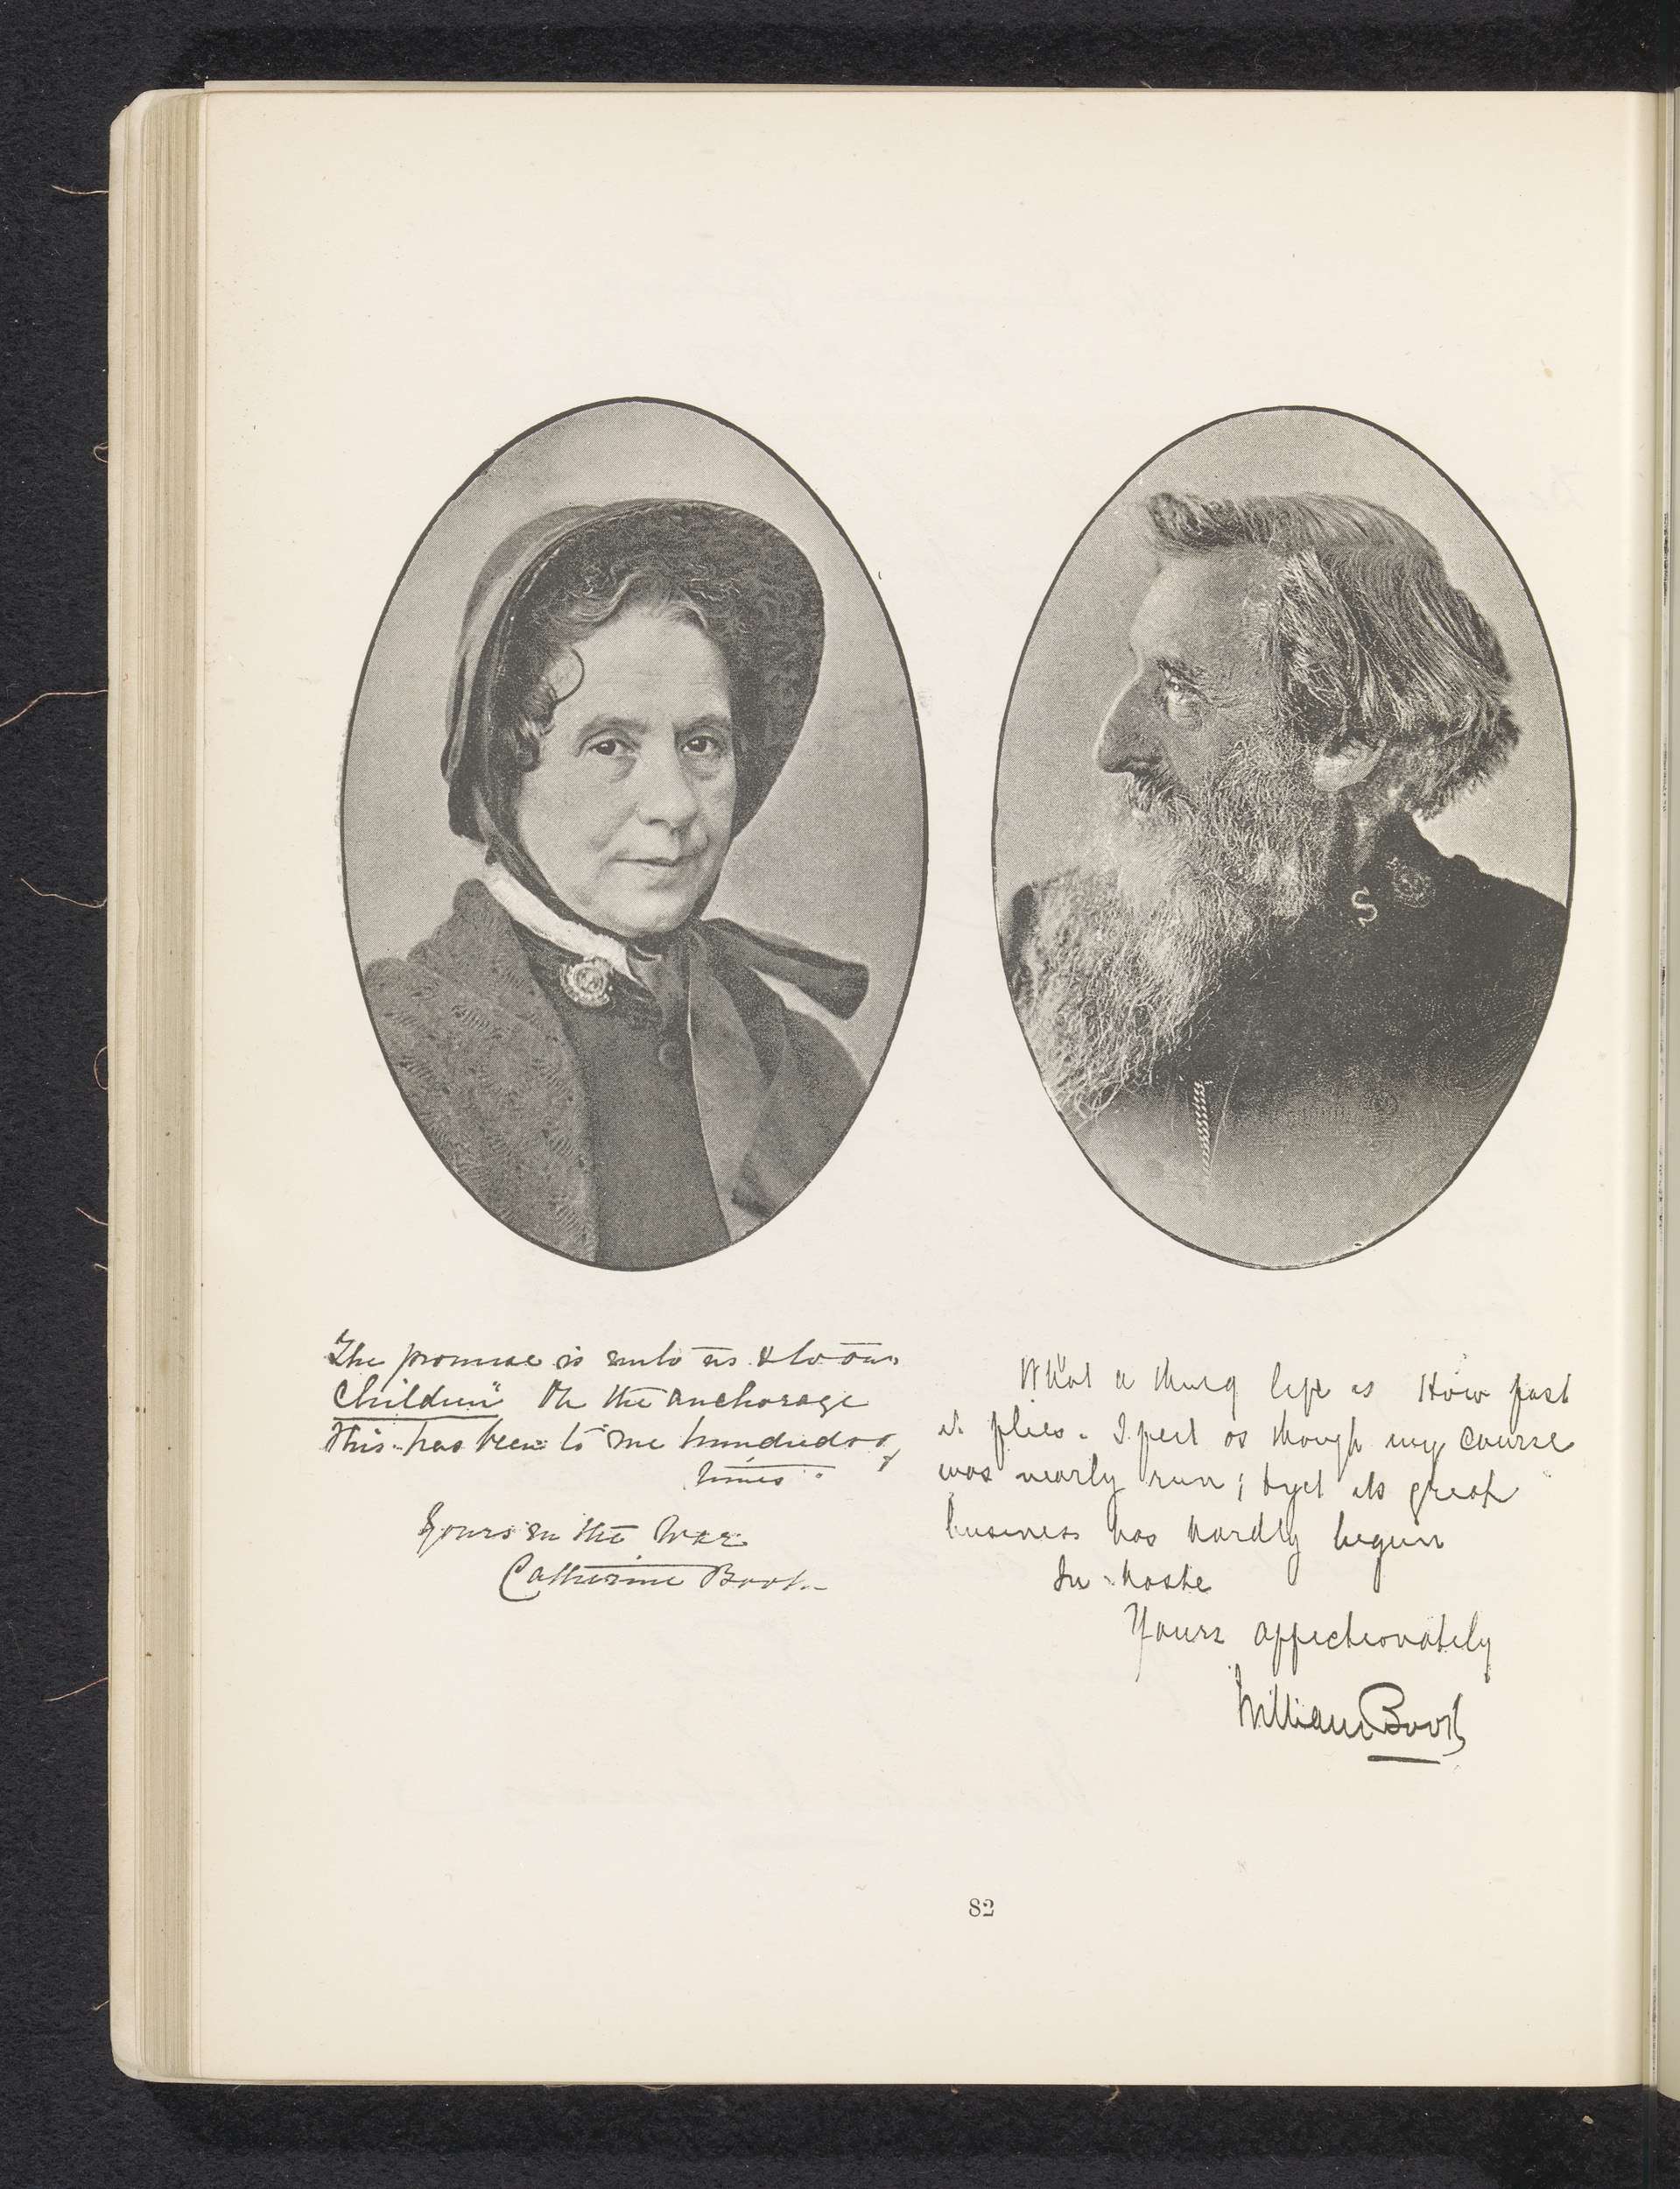 The promise is unto us & to our
Children" Oh the anchorage
this has been to me hundreds of
times.
Yours in the War
Catherine Booth
What a thing life is How fast
it flies. I feel as though my course
was nearly run; & yet its great
business has hardly begun
In haste
Yours affectionately
William Booth
S
82